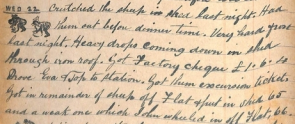 WED 22 Crutched the sheep in shed last night. Had
them out before dinner time. Very hard frost
last night. Heavy drops coming down in shed
through iron roof. Got Factory cheque £1.6.10
Drove Tea & Top to station. Got them excursion tickets.
Got in remainder of sheep off Flat & put in shed 65
and a weak one which John wheeled in off Flat, 66.